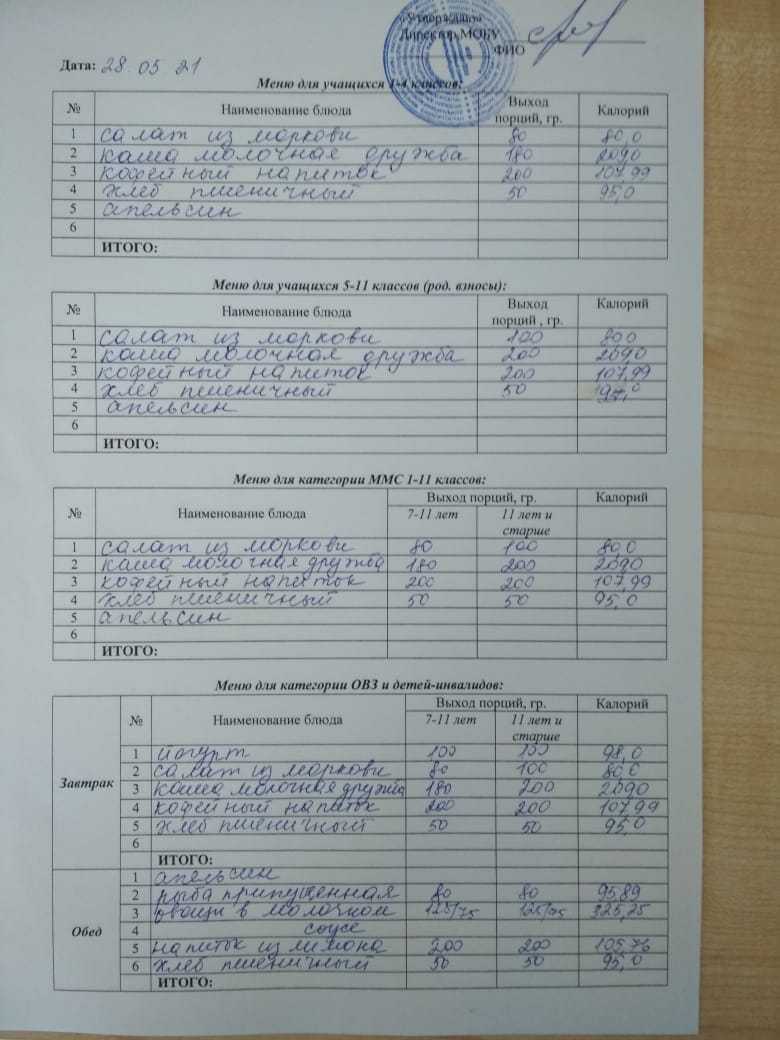 «Утверждаю»
Директор МОБУ
ФИО
Дата: 28 05 21
Меню для учащихся 1-4 классов:
№ Наименование блюда Выход порций, гр. Калорий
1 салат из моркови 80 80,0
2 каша молочная дружба 180 2090
3 кофейный напиток 200 107,99
4 хлеб пшеничный 50 95,0
5 апельсин
6
ИТОГО:
Меню для учащихся 5-11 классов (род. взносы):
№ Наименование блюда Выход порций , гр. Калорий
1 салат из моркови 100 80,0
2 каша молочная дружба 200 2090
3 кофейный напиток 200 107,99
4 хлеб пшеничный 50
5 апельсин
6
ИТОГО:
Меню для категории ММС 1-11 классов:
№ Наименование блюда Выход порций, гр. Калорий
7-11 лет 11 лет и старше
1 салат из моркови 80 100 80,0
2 каша молочная дружба 180 200 2090
3 кофейный напиток 200 200 107,99
4 хлеб пшеничный 50 50 95,0
5 апельсин
6
ИТОГО:
Меню для категории ОВЗ и детей-инвалидов:
№ Наименование блюда Выход порций, гр. Калорий
7-11 лет 11 лет и старше
Завтрак
1 йогурт 100 100 98,0
2 салат из моркови 80 100 80,0
3 каша молочная дружба 180 200 2090
4 кофейный напиток 200 200 107,99
5 хлеб пшеничный 50 50 95,0
6
ИТОГО:
Обед
1 апельсин
2 рыба припущенная 80 80 95,89
3 овощи в молочном 125/75 125/75 325,25
4 соусе
5 напиток из лимона 200 200 105,76
6 хлеб пшеничный 50 50 95,0
ИТОГО: